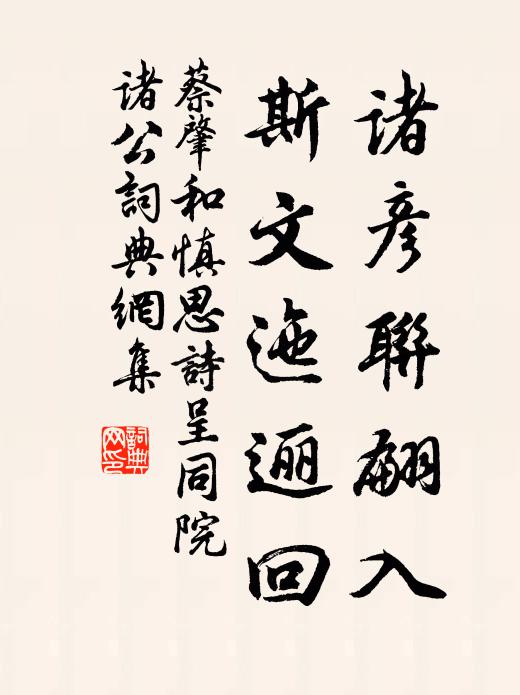 诸彦聯翩入
斯文迤逦回
蔡肇和慎思詩呈同院
诸公詞典網集
詞典
网印